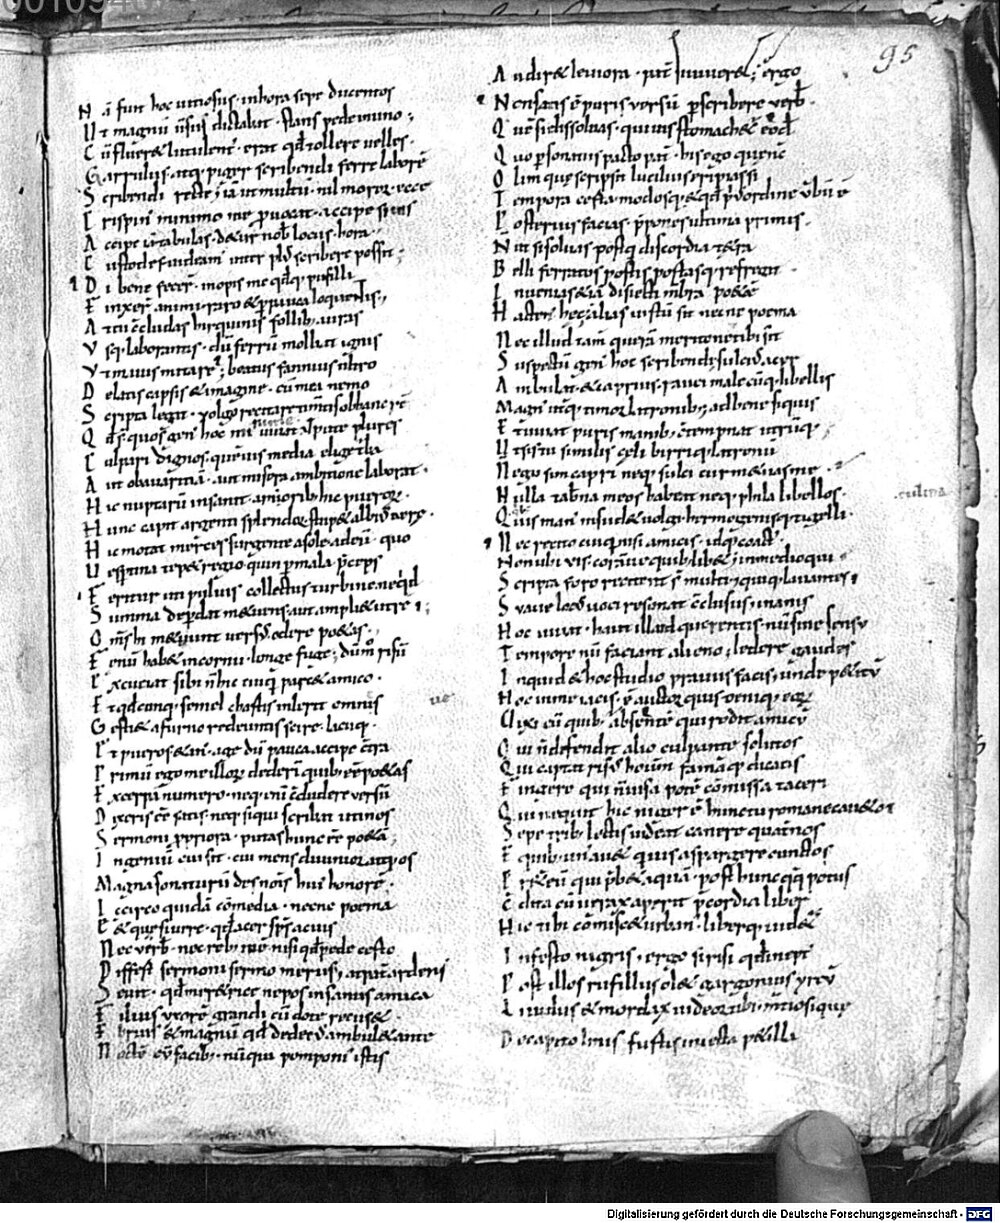 95
N ā fuit hoc uitiosus · inhora sepe ducentos
U t magnū uersus dictabat · stans pede inuno ;
C ū flueret lutulentꝰ · erat qđ tollere uelles ·
G arrulus · atq; piger scribendi ferre laborē
S cribendi recte ; nā ut multū · nil moror · ecce
C rispinꝰ minimo me p̄uocat · accipe si uis
A ccipe iā tabulas · det nob locus · hora ·
C ustodes · uideamꝰ uter plꝰ scribere possit ;
D i bene fecer̄ · inopis me qđq; pusilli
F inxer̄ animi · raro & p̄pauca loquentis ;
A t tu c̄clusas hircinis follib; auras
V sq; laborantes · dū ferrū molliat ignis
V t mauis imitare ; beatus fannius ultro
D elatis capsis & imagine · cū mea nemo
S cripta legat · uolgo recitare timētis ob hanc rē
Q đ s̄ quos genꝰ hoc minime iuuat · utpote plures
C ulpari dignos · quēuis media elige turba
A ut ob auaritiā · aut misera ambitione laborat ·
H ic nuptarū insanit amorib; hic pueror̄ ·
H unc capit argenti splendor · stupet albiꝰ aere ·
H ic mutat merces surgente a sole · ad eū · quo
U esptina tepet regio · quin p mala p̄ceps
F ertur uti puluis collectus turbine · neqd
S umma deperdat metuens · aut ampliet ut rē ;
O ms̄ hi metuunt uersꝰ · odere poetas ·
F enū habet in cornu · longe fuge ; dūm̊ risū
E xcutiat sibi n̄ hic cuiq; parcet amico ·
E t qđcunq; semel chartis inleuit omnes
G estiet a furno redeuntes scire · lacuq; ·
E t pueros & anꝰ · age dū pauca accipe c̄tra
P rimū ego me illor̄ dederī quib; eē poetas
E xcerpā numero · neq; enī c̄cludere uersū
D ixeris eē satis · neq; siqui scribat uti nos
S ermoni ppriora · putas hunc eē poetā ;
I ngeniū cui sit · cui mens diuinior atq; os
M agna sonaturū des nōis huiꝰ honorē ;
I ccirco quidā comedia · necne poema
E sset quesiuere · qđ acer sp̄s ac uis
N ec uerb̄ · nec reb; inest nisi qđ pede certo
D iffert sermoni sermo merus ; at pat̄ ardens
S euit · qđ meretrice nepos insanus amica
F ilius uxorē grandi cū dote recuset ·
E brius & magnū qđ dedecꝰ ambulet ante
N octē cū facib; · nūqui pomponiꝰ istis
A udiret leuiora · pat̄ si uiueret ; ergo
N on satis ē puris uersū p̄scribere uerb̄ ·
Q uē si dissoluas · quiuis stomachet̄ eodē
Q uo p̄sonatus pacto pat̄ · his ego que nc̄
O lim que scripsit lucilius eripias si
T empora certa modosq; & qđ p̄ꝰ ordine uerbū ē
P osterius facias · p̄ponēs ultima primis ·
N ut si soluas postq̄ discordia tetra
B elli ferratos postis portasq; refregit ·
I nuenias & iā disiecti mb̄ra poetē
H acten hec ; alias iustū sit necne poema
N ec illud tam̄ querā meritone tibi sit
S uspectū genꝰ hoc scribendi ; sulciꝰ acer
A mbulat & caprius · rauci male cūq; libellis
M agnꝰ uterq; timor latronib; at bene siquis
E t uiuat puris manib; c̄tempnat utrūq; ·
U t sis tu similis celi birriq; latronū
N ego sim capri neq; sulci cur metuas me ·
N ulla tab̄na meos habeat neq; pila libellos ·
culina
Q uis manꝰ insudet uolgi hermogenisq; tigelli ·
N ec recito cuiq̄ nisi amicis · idq; coactꝰ ·
N on ubi uis · coramue quib; libet ; in medio qui ·
S cripta foro recitent s̄ multi ; quiq; lauantes ;
S uaue locꝰ uoci resonat c̄clusus ; inanis
H oc iuuat · haut illud querentis · nū sine sensu
T empore nū faciant alieno ; ledere gaudes
I nquid & hoc studio prauus facis ; unde petitū
H oc in me iacis · ē auctor quis deniq; eor̄
U ixi cū quib; · absentē qui rodit amicū
Q ui n̄ defendit alio culpante · solutos
Q ui captat risꝰ hoīum famāq; dicacis
F ingere qui n̄ uisa potē · cōmissa tacere
Q ui nequit · hic niger ē · hunc tu romane caueto ;
S epe trib; lectis uideas cenare quat̄nos
E quib; unꝰ auet quiuis aspargere cunctos
P rt̄ eū qui p̄bet aquā · post hunc q̄q; potus
C ondita cū uerax aperit p̄cordia liber
H ic tibi comis & urbanꝰ · liberq; uidet̄
I nfesto nigris ; ergo si risi qđ ineptꝰ
P astillos rufillus olet gargonius yrcū
L iuidus & mordax uideor tibi ; mentio siq;
D e capitolinis furtis iniecta petilli
Digitalisierung gefördert durch die Deutsche Forschungsgemeinschaft - DFG